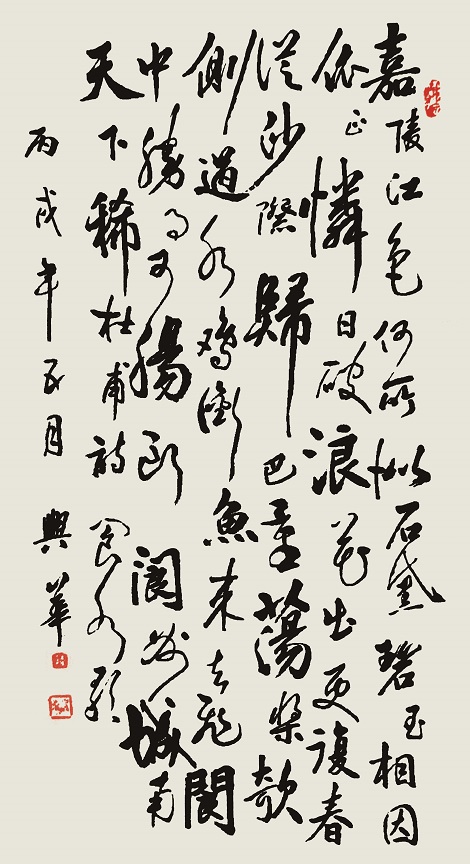 嘉陵江色何所似石黛碧玉相因
依正憐日破浪花出更復春
從沙際歸巴童蕩槳欹
側過水鸡銜魚来去飛閬
中勝事可腸斷閬州城南
天下稀杜甫詩閬水歌
丙戌年五月興華